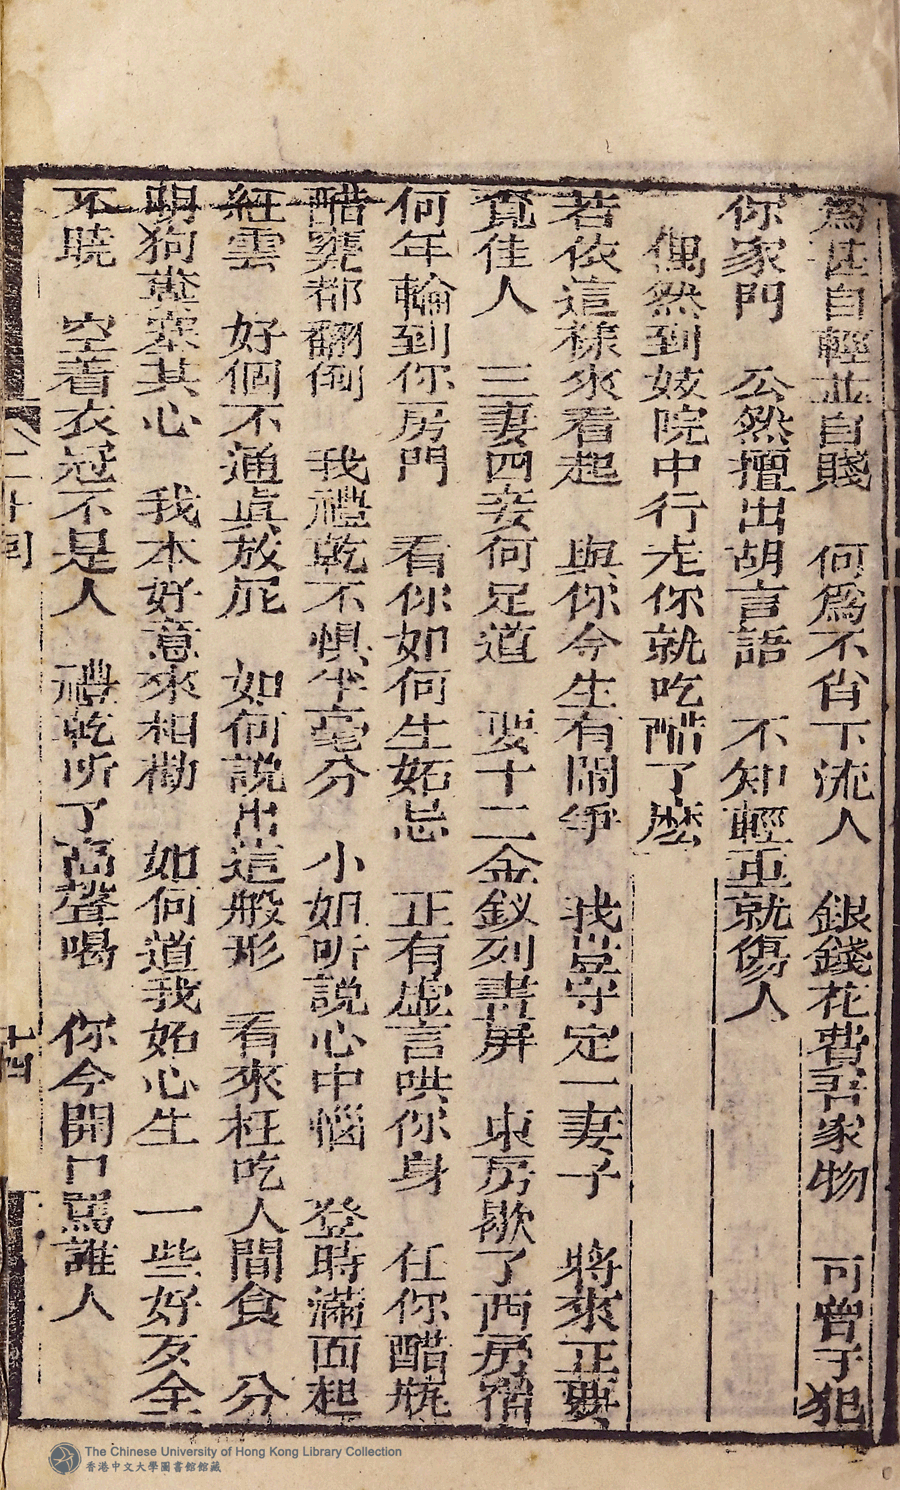 為甚自輕並自賤　何為不肖下流人　銀錢花費吾家物　可曾于犯
你家門　公然擅出胡言語　不知輕重就傷人
偶然到妓院中行走你就吃醋了麽
若依這樣來看起　與你今生有鬧爭　我豈守定一妻子　將來正要
覓佳人　三妻四妾何足道　娶十二金釵列畫屏　東房歇了西房宿
何年輪到你房門　看你如何生妬忌　正有虛言哄你身　任你醋瓶
醋甕都翻倒　我禮乾不惧半毫分　小姐听説心中惱　登時滿面起
紅雲　好個不通真放屁　如何説出這般形　看來枉吃人間食　分
明狗糞塞其心　我本好意來相勸　如何道我妬心生　一些好歹全
不曉　空着衣冠不是人　禮乾听了高聲喝　你今開口罵誰人
二十回
十四
The Chinese University of Hong Kong Library Collection
香港中文大學圖書館館藏